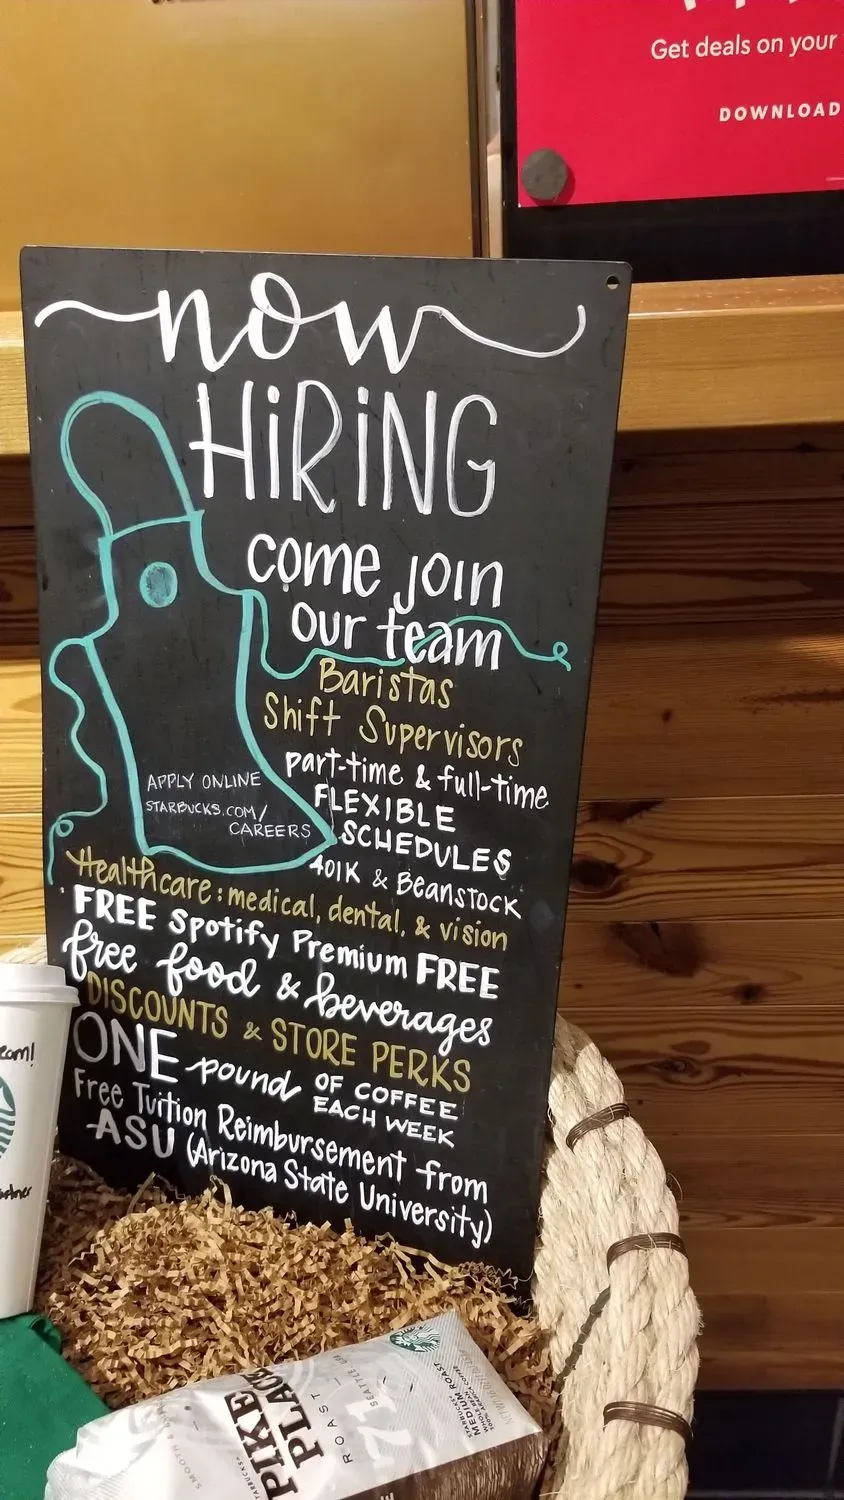 Get deals on your
DOWNLOAD
now
HiRiNG
come join
our team
Baristas
Shift Supervisors
part-time & full-time
FLEXIBLE
SCHEDULES
401K & BEANSTOCK
APPLY ONLINE
STARBUCKS.COM/
CAREERS
Healthcare: medical, dental, & vision
FREE Spotify Premium FREE
free food & beverages
DISCOUNTS & STORE PERKS
ONE pound OF COFFEE
EACH WEEK
Free Tuition Reimbursement from
ASU (Arizona State University)
PIKE
PLACE
ROAST
STARBUCKS
MEDIUM ROAST